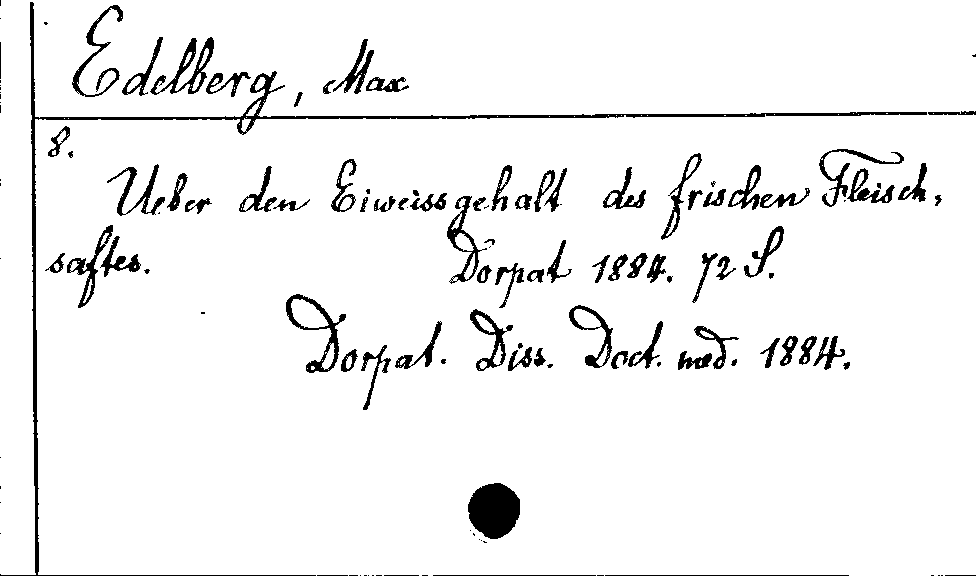 Edelberg, Max
8.
Ueber den Eiweissgehalt des frischen Fleisch-
saftes. Dorpat 1884. 72 S.
Dorpat. Diss. Doct. med. 1884.